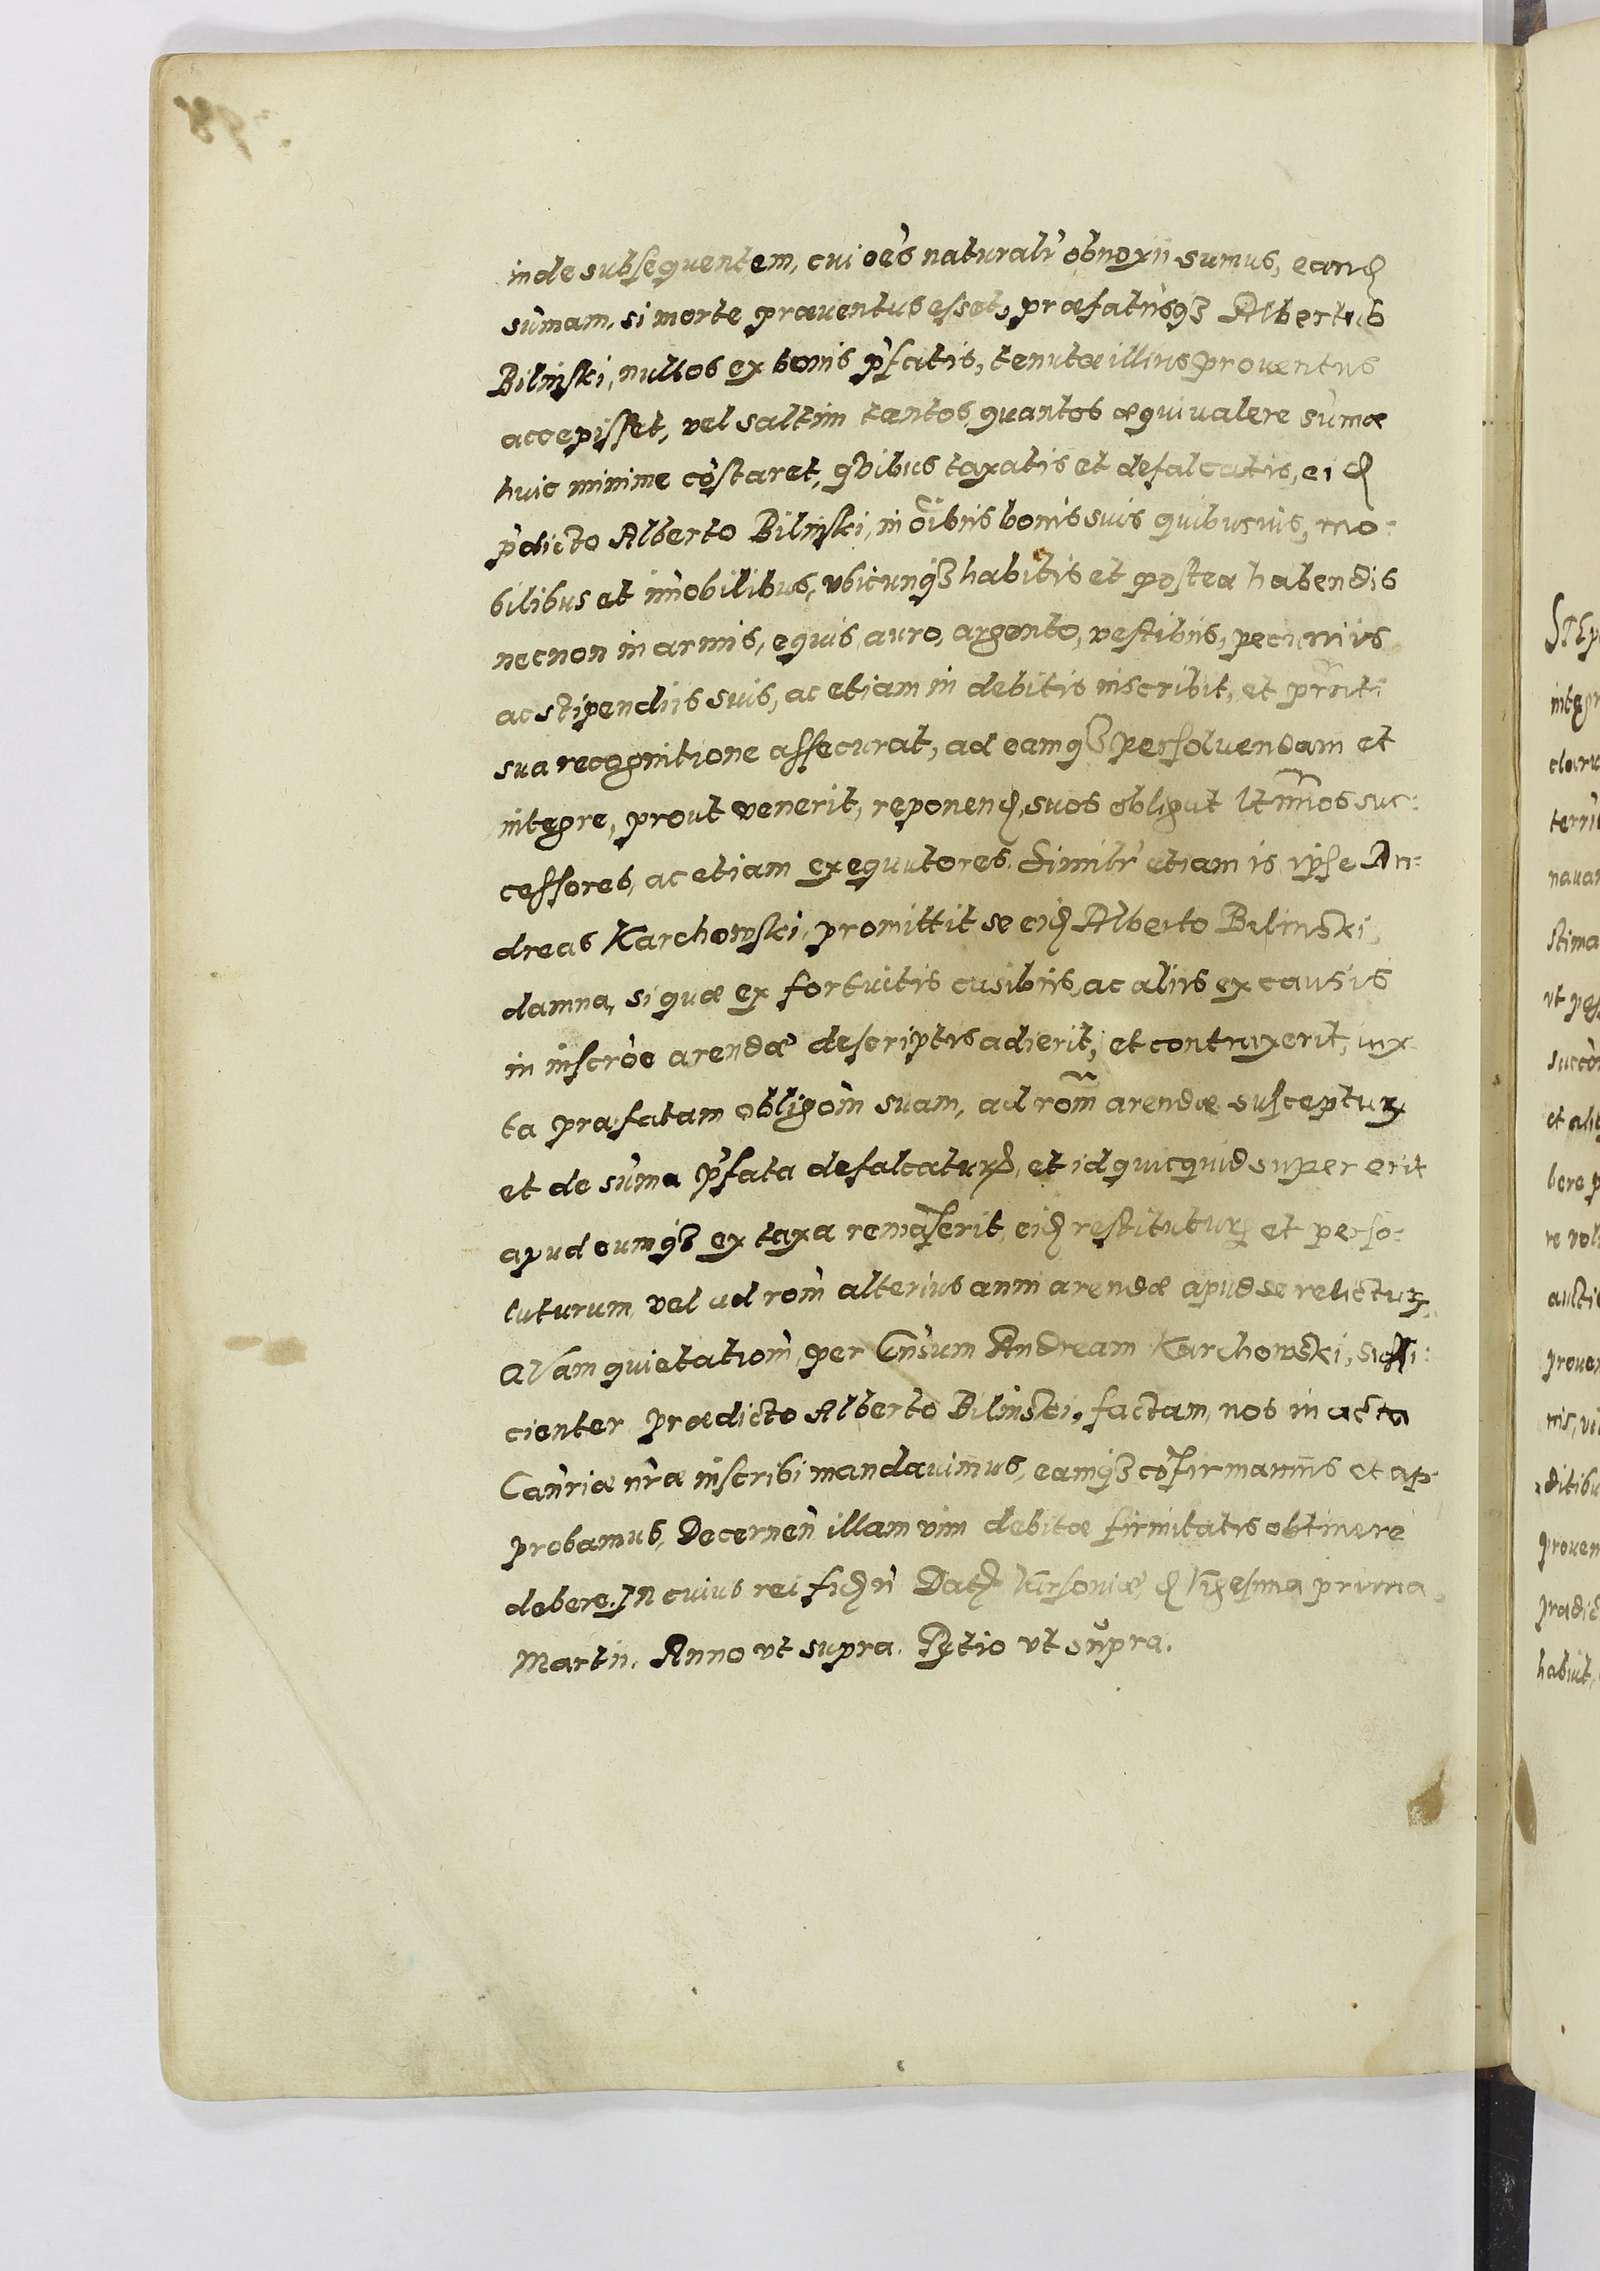 inde subsequentem, cui oẽs naturalr̃ obnoxii sumus, eand
sum̃am, si morte præuentus esset, præfatusqʒ Albertus
Bilinski, nullos ex bonis p̃fatis, tenutæ illius prouentus
accepisset, vel saltim tantos, quantos æquiualere sum̃æ
huic minime cõstaret, qvibus taxatis et defalcatis, eid
p̃dicto Alberto Bilinski, in oĩbus bonis suis quibusuis, mo-
bilibus et im̃obilibus, vbicunqʒ habitis et postea habendis
necnon in armis, equis, auro, argento, vestibus, pecuniis
ac stipendiis suis, ac etiam in debitis inscribit, et prñti
sua recognitione assecurat, ad eamqʒ persoluendam et
integre, prout venerit, reponend, suos obligat ltĩmos suc-
cessores, ac etiam exequutores. Similr̃ etiam is ipse An-
dreas Karchowski, promittit se eid Alberto Bilinski,
damna, si quæ ex fortuitis casibus, ac aliis ex causis
in inscrõe arendæ descriptis adierit, et contraxerit, iux-
ta præfatam obligõm suam, ad rõm arendæ susceptuꝝ
et de sum̃a p̃fata defalcatuꝝ, et id quicquid super erit
apud eumqʒ ex taxa remãserit, eid restitutuꝝ et perso-
luturum, vel ad rõm alterius anni arendæ apud se relictuꝝ.
Qvam quietatiom̃ per Gñsum Andream Karchowski, suffi-
cienter prædicto Alberto Bilinski, factam, nos in acta
Cañriæ nr̃æ inscribi mandauimus, eamqʒ cõfirmamus et ap-
probamus, Decerneñ illam vim debitæ firmitatis obtinere
debere. In cuius rei fid ñ Dat Varsouiæ, d Vigesima prima
Martii. Anno vt supra. Rltio vt supra.